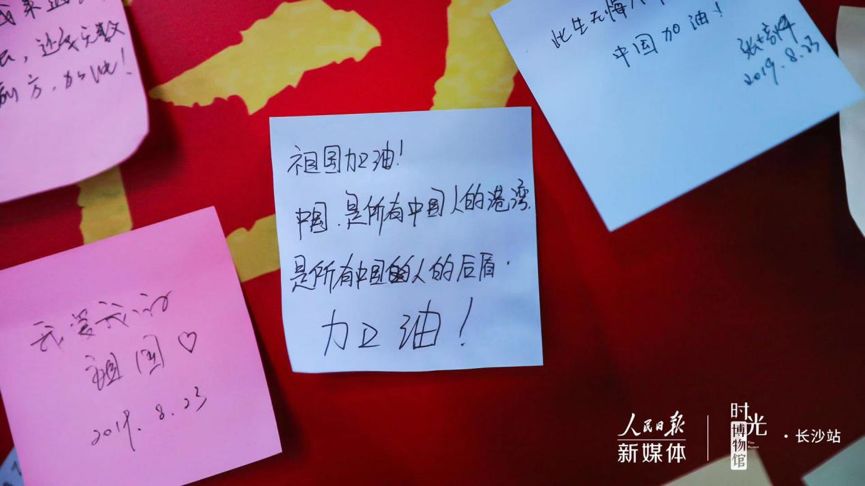 加油!
祖国加油!
中国,是所有中国人的港湾,
是所有中国的人的后盾.
加卫油!
我爱我的
祖国♡
2019.8.23
此生无悔入
中国加油!
2019.8.23
人民日报
新媒体
时光
博物馆
·长沙站